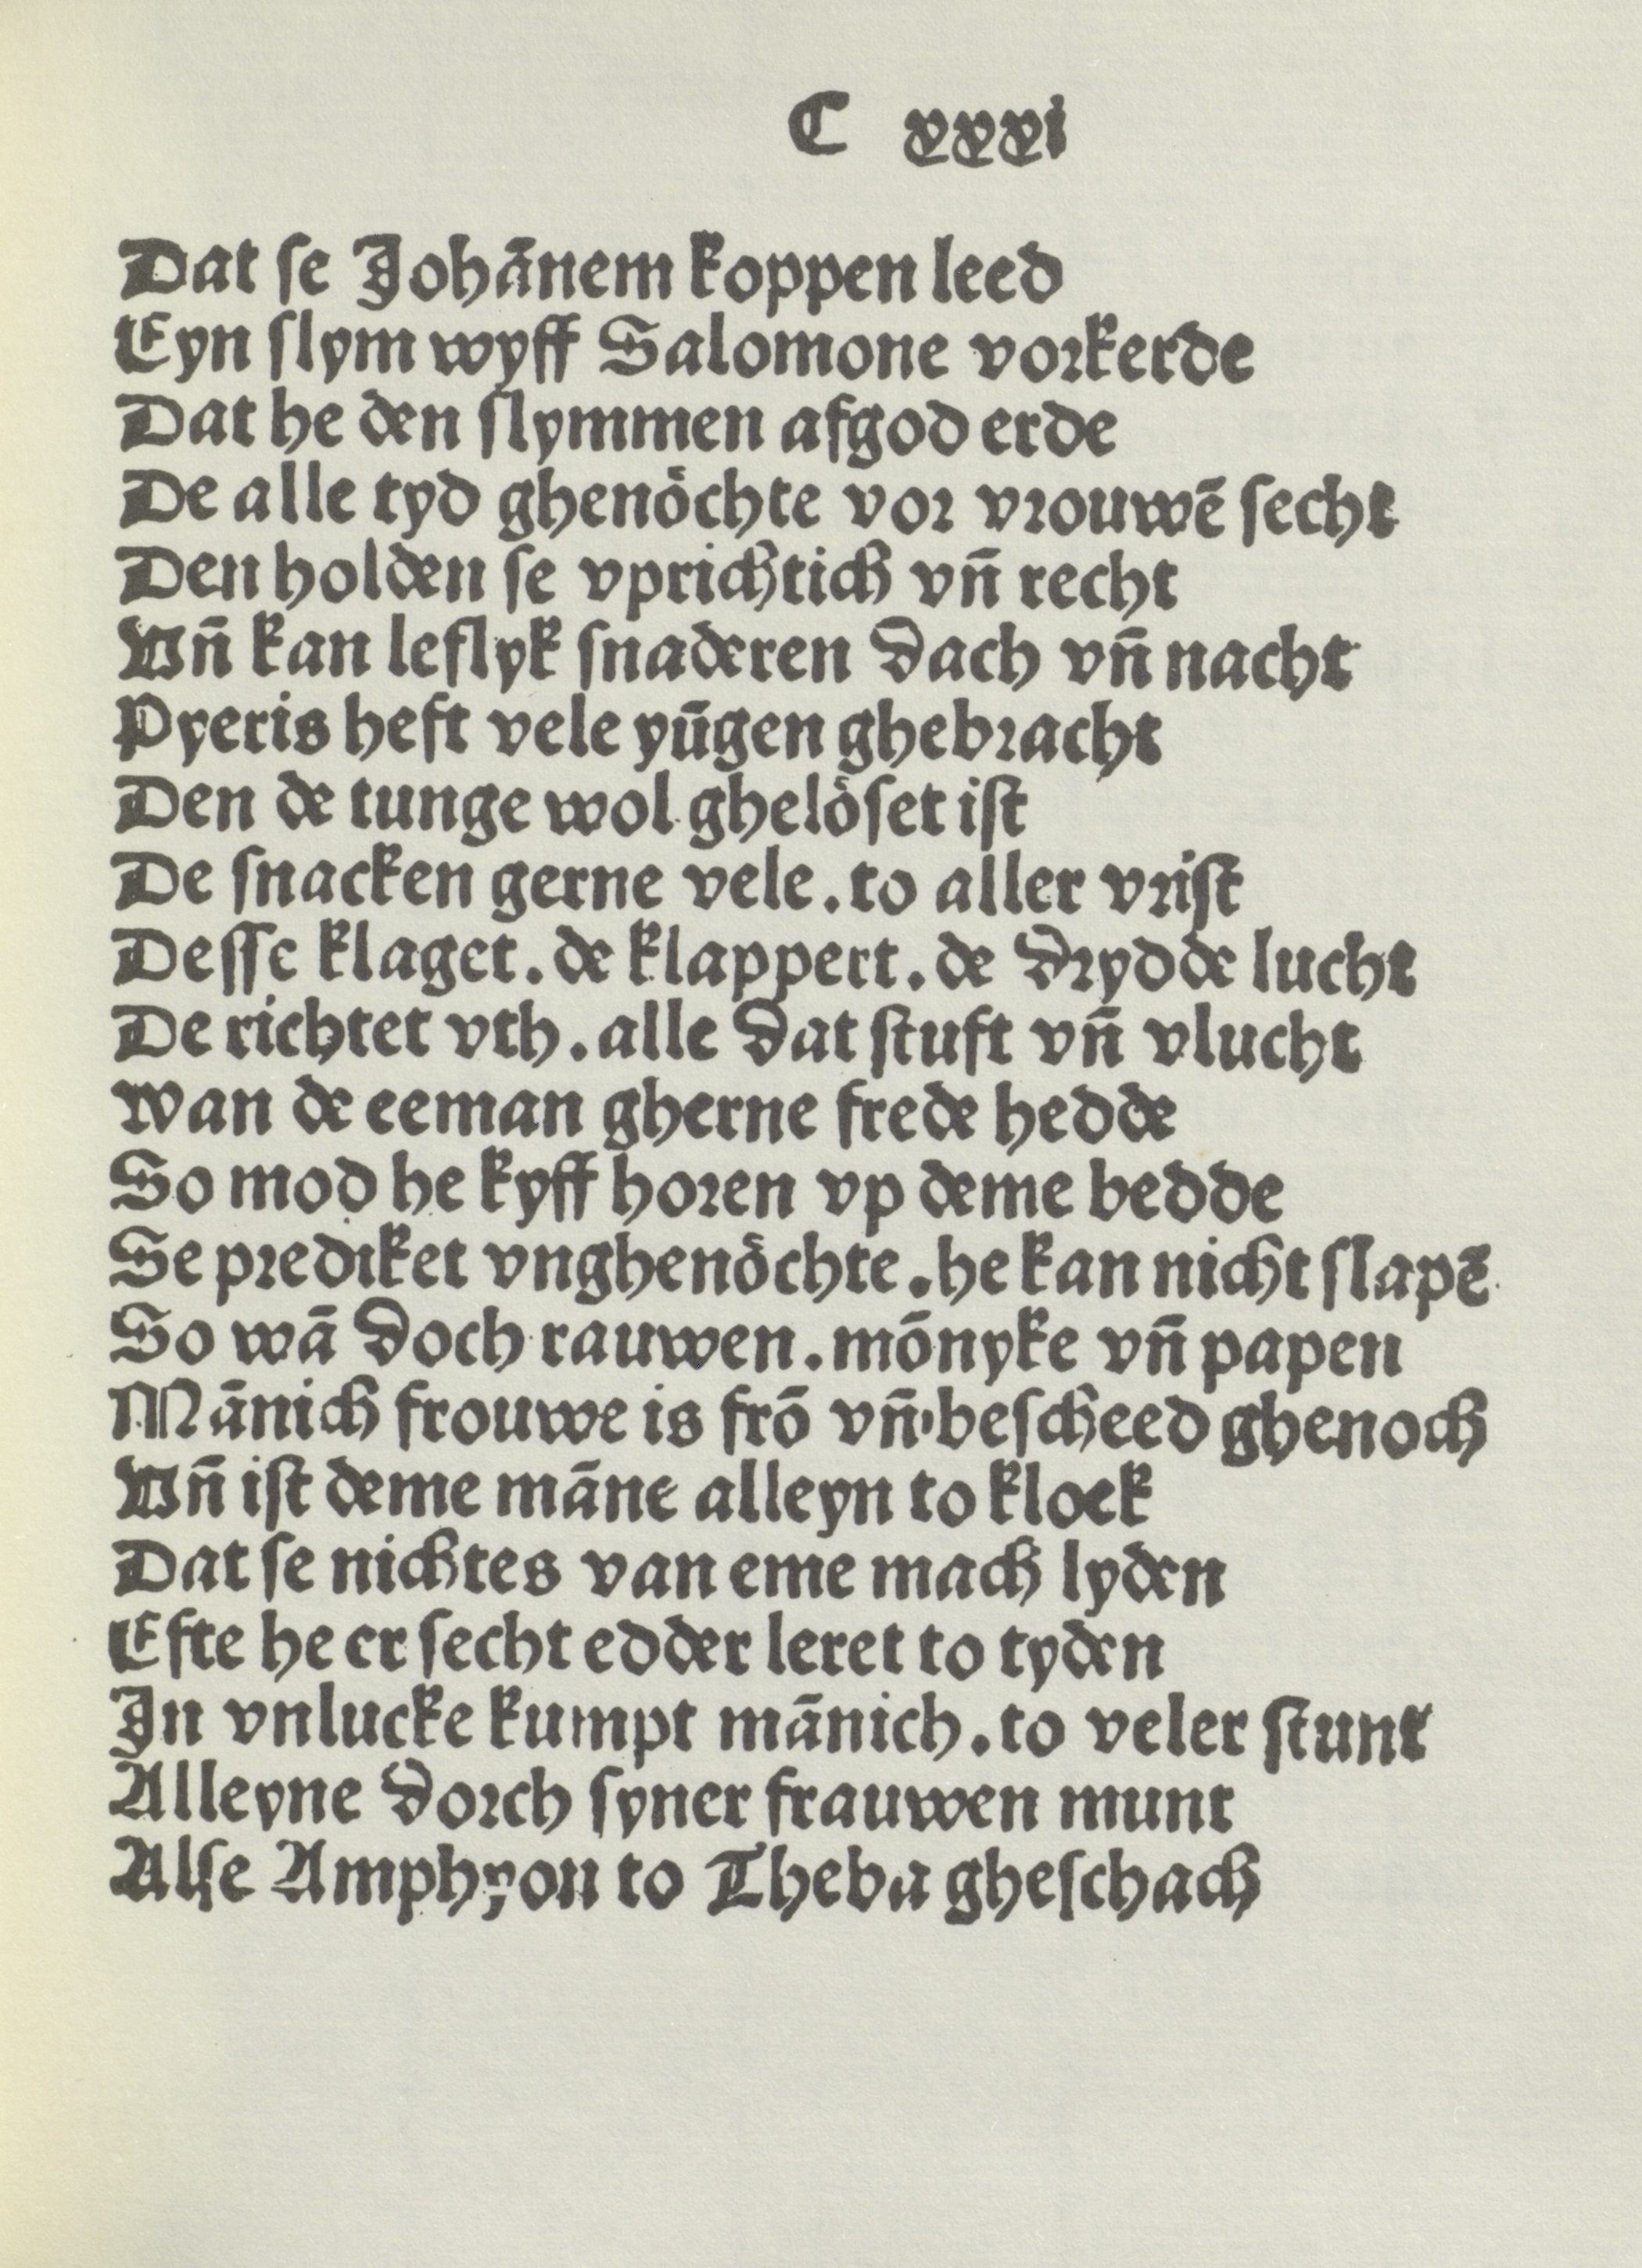 C xxxi
Dat ſe Johānem koppen leed
Eyn ſlym wyff Salomone vorkerde
Dat he den ſlymmen afgod erde
De alle tyd ghenöchte vor vrouwē ſecht
Den holden ſe vprichtich vn̄ recht
Vn̄ kan leflyk ſnaderen dach vn̄ nacht
Pyeris heft vele yūgen ghebracht
Den de tunge wol ghelöſet iſt
De ſnacken gerne vele. to aller vriſt
Deſſe klaget. de klappert. de drydde lucht
De richtet vth. alle dat ſtuft vn̄ vlucht
Wan de eeman gherne frede hedde
So mod he kyff horen vp deme bedde
Se prediket vnghenöchte. he kan nicht ſlapē
So wā doch rauwen. mōnyke vn̄ papen
Mānich frouwe is frō vn̄ beſcheed ghenoch
Vn̄ iſt deme māne alleyn to klock
Dat ſe nichtes van eme mach lyden
Efte he er ſecht edder leret to tyden
In vnlucke kumpt mānich. to veler ſtunt
Alleyne dorch ſyner frauwen munt
Alſe Amphyon to Theba gheſchach